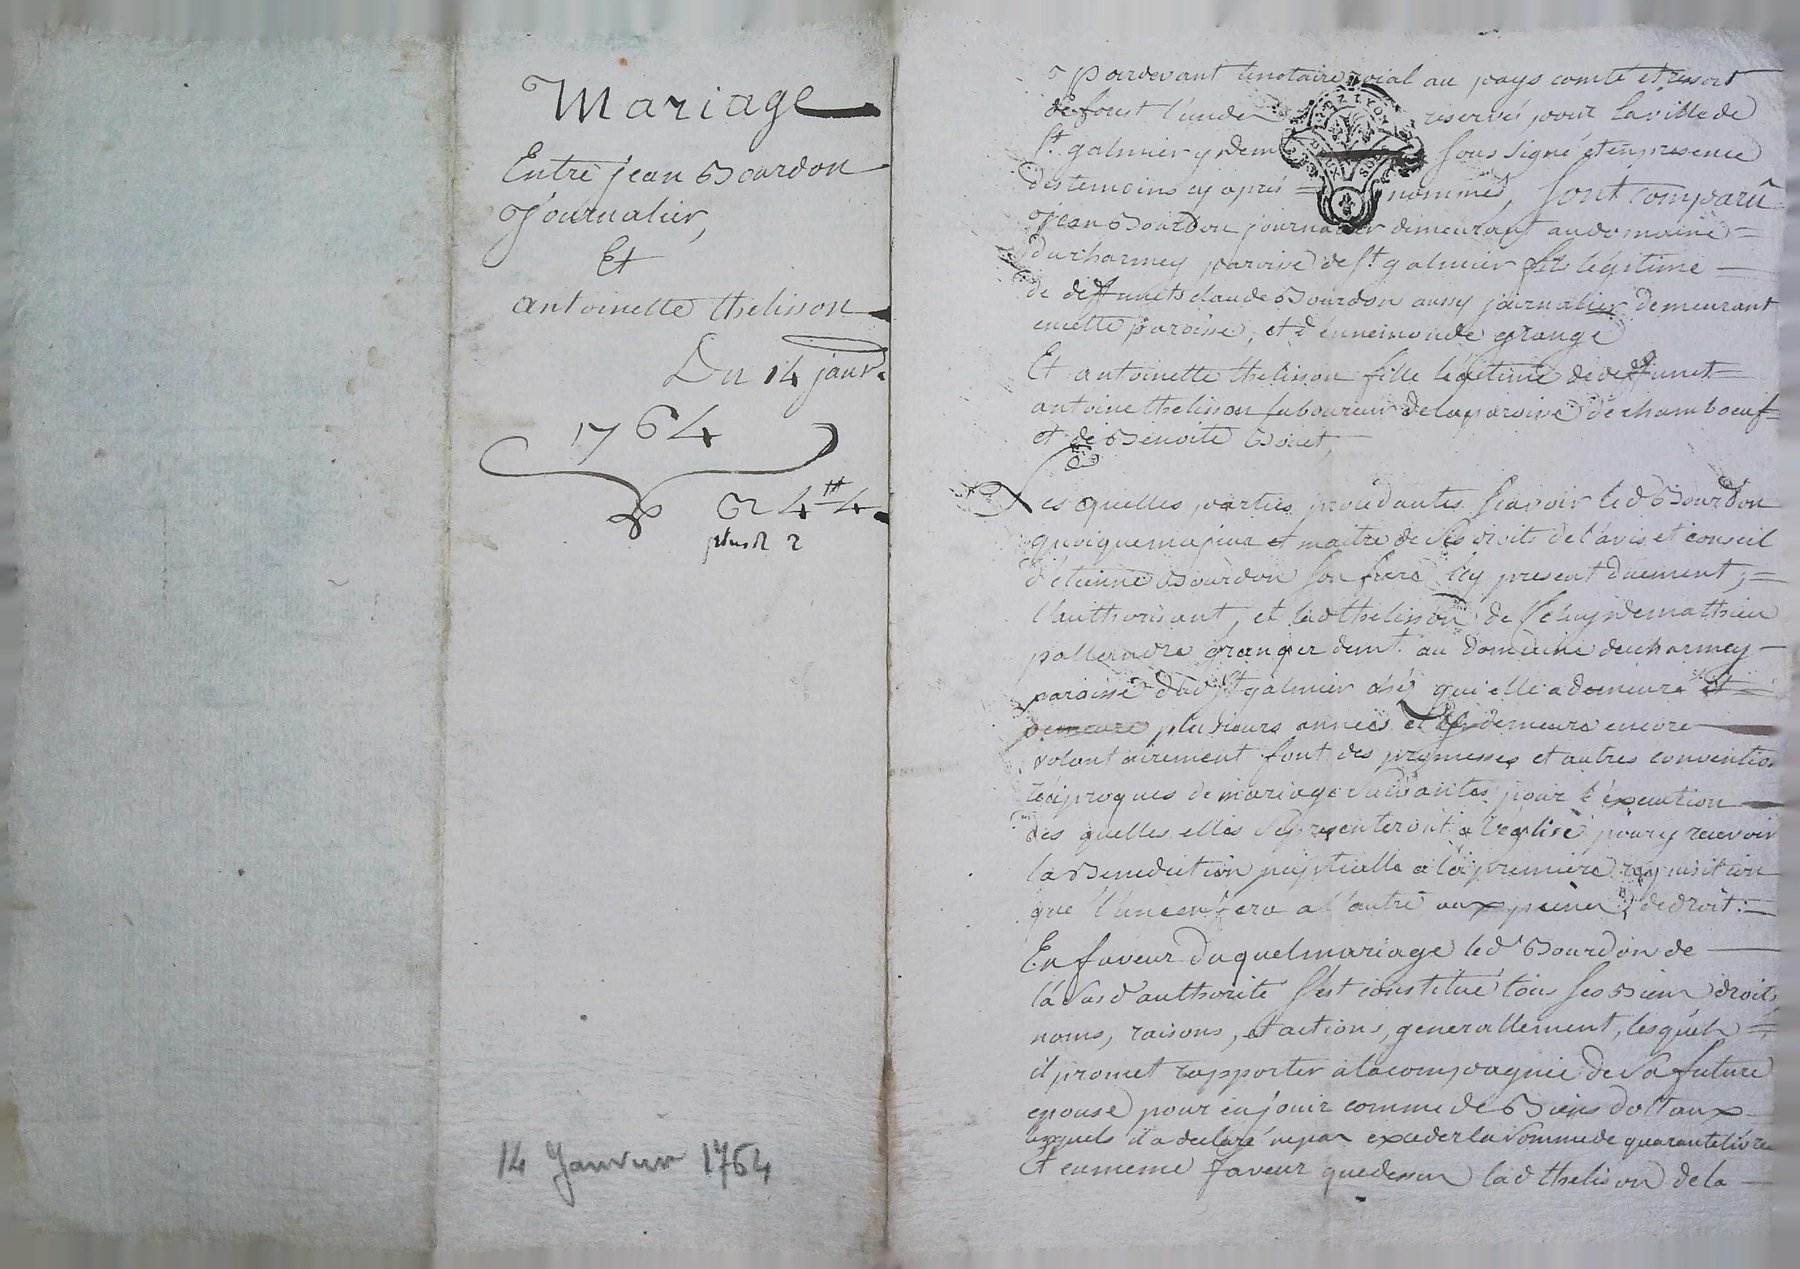 Mariage
Entre jean Bourdon
Journalier,
Et
antoinette thelisson
Du 14 janvr.
1764
4 4
plus 2
14 Janvier 1764
Pardevant le notaire roial au pays comté et ressort
de forest reservé pour la ville de
St. galmier y dem sous signé et en presence
des temoins cy apres nommés, sont comparû
jean Bourdon journalier demeurant au domaine
du charmey paroisse de St galmier fils légitime
de deffunct claude Bourdon aussy journalier demeurant
en cette paroisse, et d'ennemonde grange
Et antoinette thelisson fille légitime de deffunct
antoine thelisson laboureur de la paroisse de chamboeuf
et de Benoite
Les quelles parties procédantes sçavoir led Bourdon
quoique majeur et maitre de ses droits de l'avis et conseil
d'etienne Bourdon son frere icy present duement,
l'authorisant, et lad thelisson de celuy de mathieu
granger demt. au domaine du charmey
paroisse dud St galmier chés qui elle a demeuré et
demeure plusieurs années et y demeure encore
volontairement font des promesses et autres convention
réciproques de mariage suivantes pour l'éxécution
des quelles elles se presenteront a l'eglise pour y recevoir
la Benediction nuptialle a la premiere requisition
que l'une en fera a l'autre aux peines de droit:
En faveur duquel mariage led Bourdon de
la susd authorité s'est constitué tous ses biens droits
noms, raisons, et actions, generallement, lesquels
il promet rapporter a la compagnie de sa future
epouse pour en jouir comme de Biens dottaux
lesquels il a declaré ne pas exceder la somme de quarante livres
Et en meme faveur que dessus lad thelisson de la